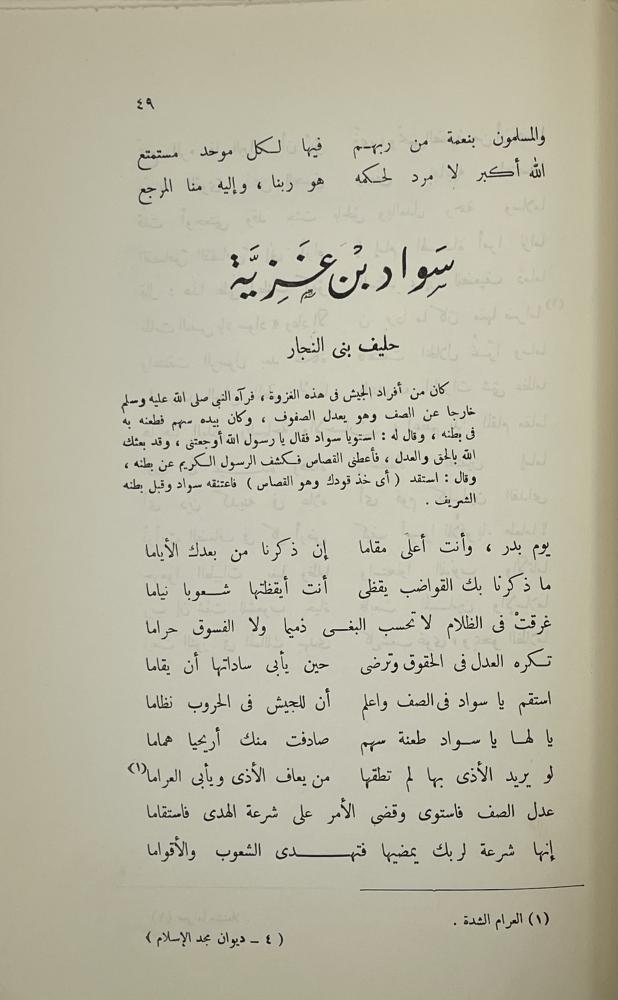 ٤٩
والمسلمون بنعمة من ربهم فيها لكل موحد مستمتع
الله أكبر لا مرد لحكمه هو ربنا ، وإليه منا المرجع
سَواد بْن غَزِيَّة
حليف بنى النجار
كان من أفراد الجيش فى هذه الغزوة ، فرآه النبى صلى الله عليه وسلم
خارجا عن الصف وهو يعدل الصفوف ، وكان بيده سهم فطعنه به
فى بطنه ، وقال له : استويا سواد فقال يا رسول الله أوجعتنى ، وقد بعثك
الله بالحق والعدل ، فأعطنى القصاص فكشف الرسول الكريم عن بطنه ،
وقال : استقد ( أى خذ قودك وهو القصاص ) فاعتنقه سواد وقبل بطنه
الشريف .
يوم بدر ، وأنت أعلى مقاما إن ذكرنا من بعدك الأياما
ما ذكرنا بك القواضب يقظى أنت أيقظتها شعوبا نياما
غرقتْ فى الظلام لا تحسب البغى ذميما ولا الفسوق حراما
تكره العدل فى الحقوق وترضى حين يأبى ساداتها أن يقاما
استقم يا سواد فى الصف واعلم أن للجيش فى الحروب نظاما
يا لها يا سواد طعنة سهم صادفت منك أريحيا هماما
لو يريد الأذى بها لم تطقها من يعاف الأذى ويأبى العراما(١)
عدل الصف فاستوى وقضى الأمر على شرعة الهدى فاستقاما
إنها شرعة لربك يمضيها فتهدى الشعوب والأقواما
(١) العرام الشدة .
( ٤ – ديوان مجد الإسلام )